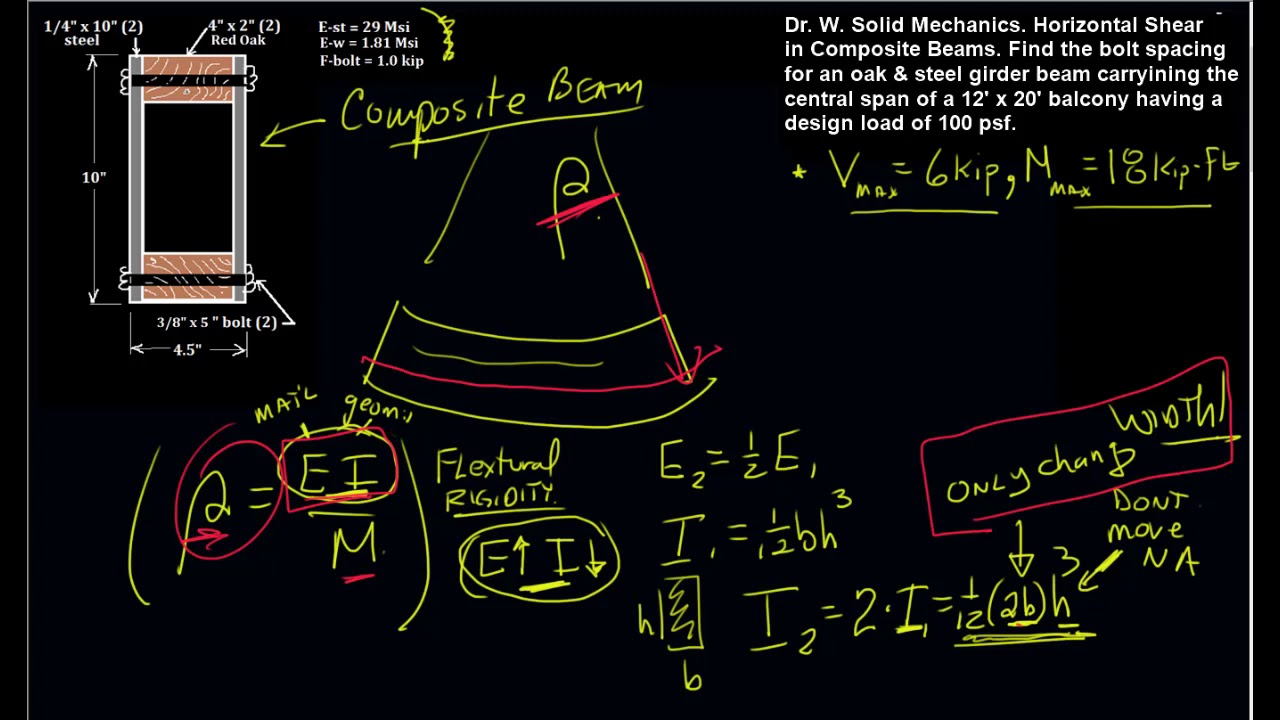 1/4" x 10" (2)
steel
4" x 2" (2)
Red Oak
E-st = 29 Msi
E-w = 1.81 Msi
F-bolt = 1.0 kip
Dr. W. Solid Mechanics. Horizontal Shear
in Composite Beams. Find the bolt spacing
for an oak & steel girder beam carryining the
central span of a 12' x 20' balcony having a
design load of 100 psf.
* VMAX = 6 kip, MMAX = 18 kip-ft
COMPOSITE BEAM
ρ
10"
3/8" x 5 " bolt (2)
4.5"
MAT'L
geom.
(ρ = EI / M)
FLextural
RIGIDITY
E↑ I↓
E2 = 1/2 E1
I1 = 1/12 bh^3
h
b
I2 = 2·I1 = 1/12 (2b) h^3
ONLY change
WIDTH!
DONT
move
NA